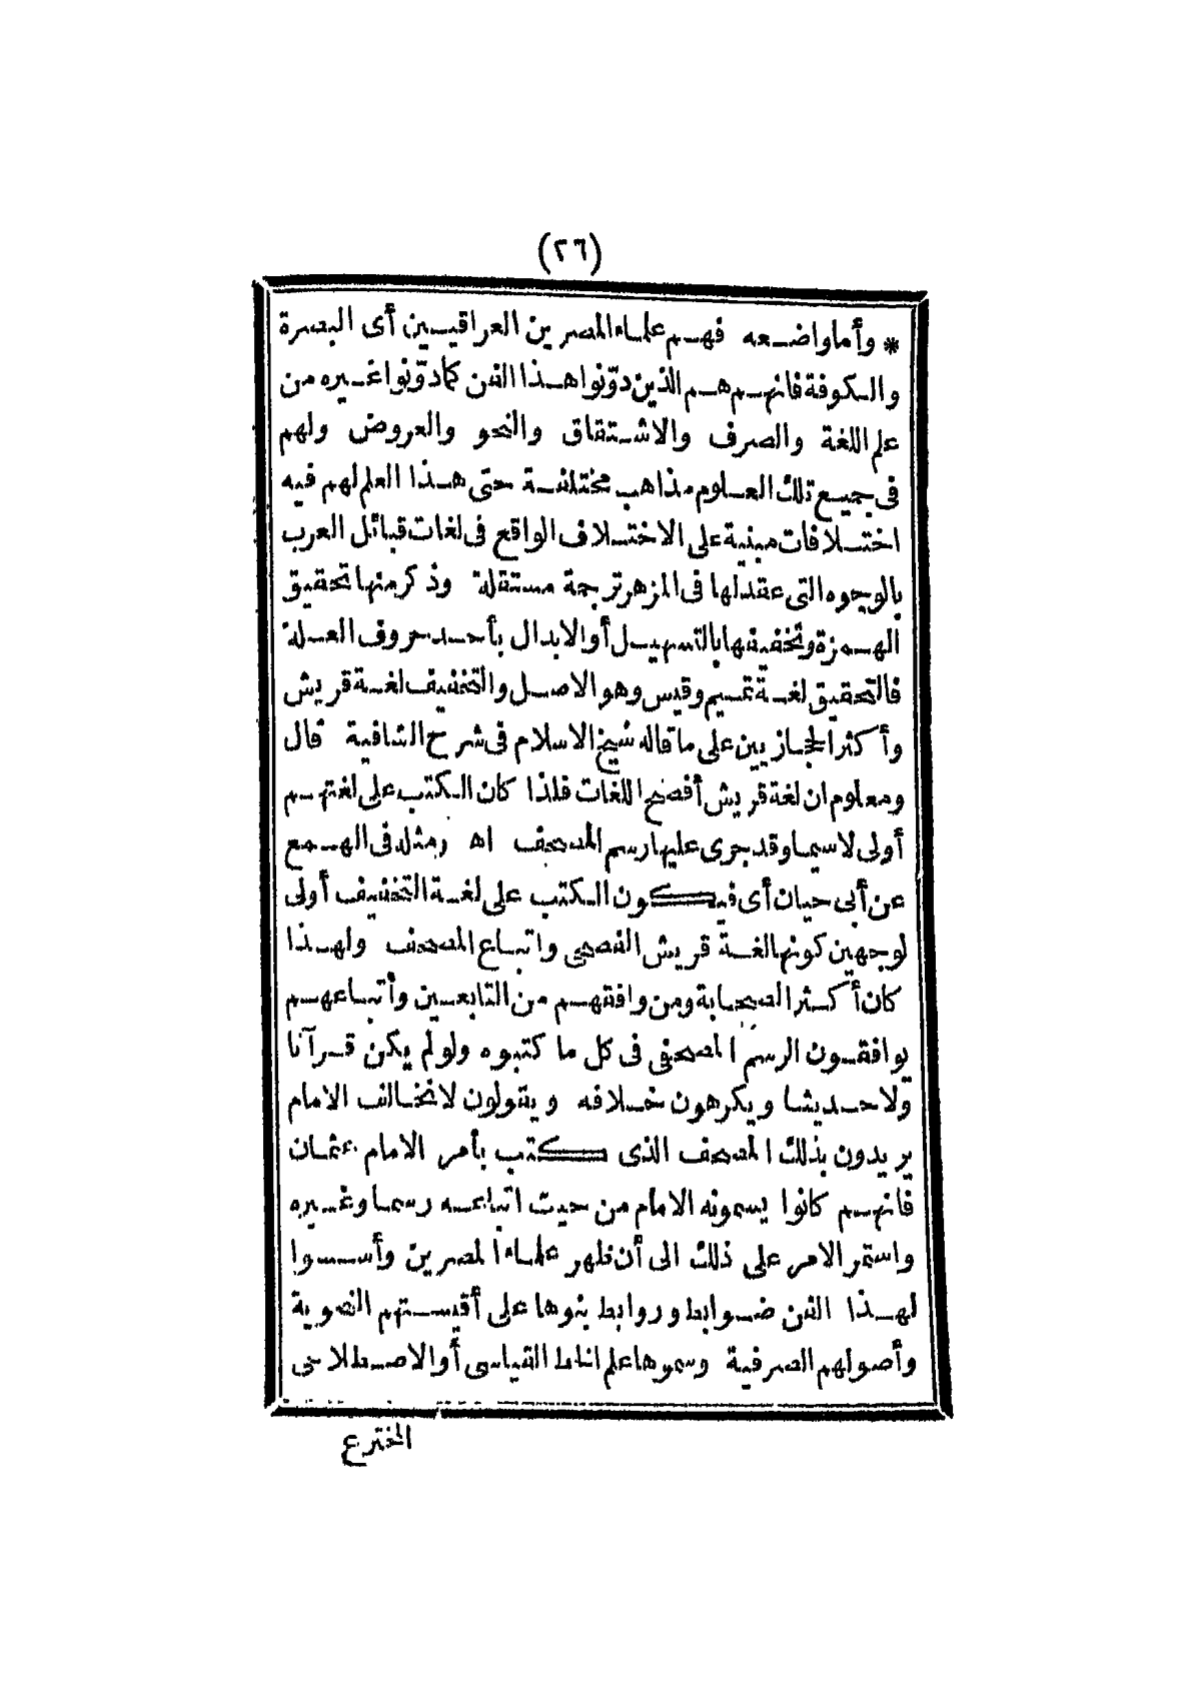 (٢٦)
* وأما واضعه فهم علماء المصرين العراقيين أى البصرة
والكوفة فانهم هم الذين دوّنوا هذا الفن كما دوّنوا غيره من
علم اللغة والصرف والاشتقاق والنحو والعروض ولهم
فى جميع تلك العلوم مذاهب مختلفة حتى هذا العلم لهم فيه
اختلافات مبنية على الاختلاف الواقع فى لغات قبائل العرب
بالوجوه التى عقد لها فى المزهر ترجمة مستقلة وذكر منها تحقيق
الهمزة وتخفيفها بالتسهيل أو الابدال بأحد حروف العلة
فالتحقيق لغة تميم وقيس وهو الاصل والتخفيف لغة قريش
وأكثر الحجازيين على ما قاله شيخ الاسلام فى شرح الشافية قال
ومعلوم ان لغة قريش أفصح اللغات فلذا كان الكتب على لغتهم
أولى لاسيما وقد جرى عليها رسم المصحف اه ومثله فى الهمع
عن أبى حيان أى فيكون الكتب على لغة التخفيف أولى
لوجهين كونها لغة قريش الفصحى واتباع المصحف ولهذا
كان أكثر الصحابة ومن وافقهم من التابعين وأتباعهم
يوافقون الرسم المصحفى فى كل ما كتبوه ولو لم يكن قرآنا
ولا حديثا ويكرهون خلافه ويقولون لا نخالف الامام
يريدون بذلك المصحف الذى كتب بأمر الامام عثمان
فانهم كانوا يسمونه الامام من حيث اتباعه رسما وغيره
واستمر الامر على ذلك الى أن ظهر علماء المصرين وأسسوا
لهذا الفن ضوابط وروابط بنوها على أقيستهم النحوية
وأصولهم الصرفية وسموها علم الخط القياسى أو الاصطلاحى
المخترع